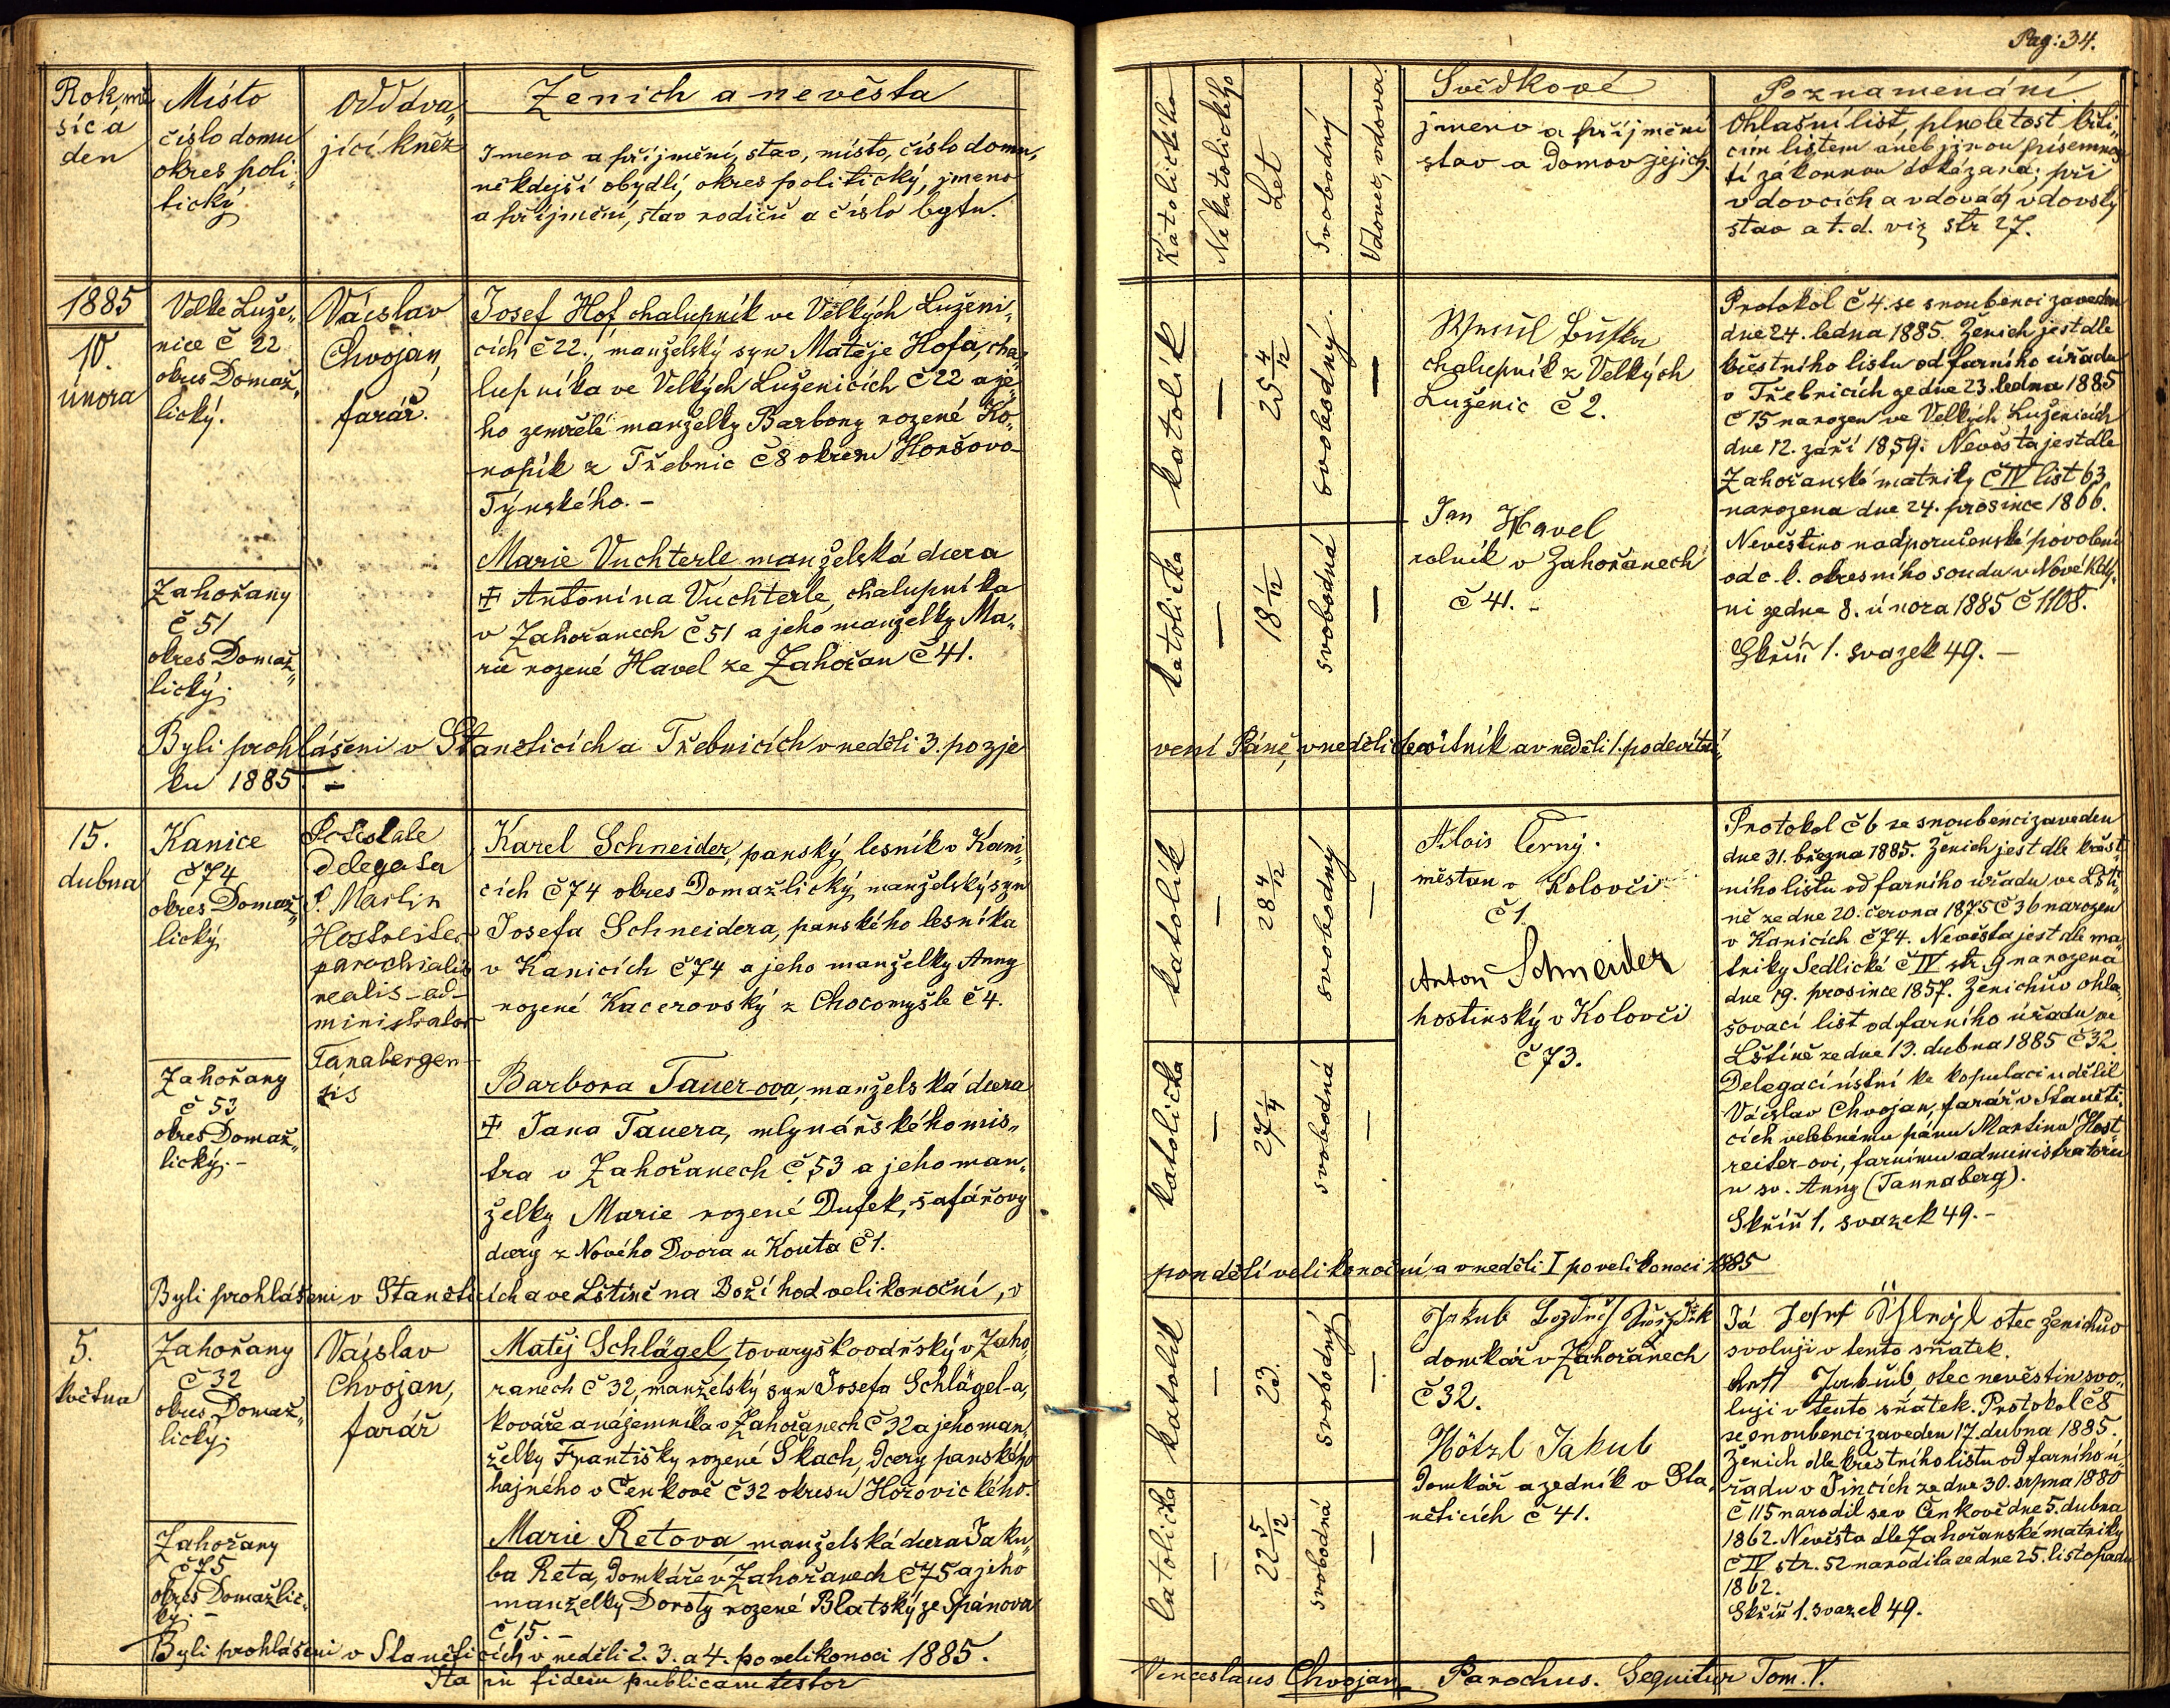 Pag: 34.
Rok, mě
síc a
den
Místo
číslo domu
okres poli„
tický
Oddáva„
jící kněz
Ženich a nevěsta
Jmeno a příjmění, stav, místo, číslo domu,
někdejší obydlí, okres politický, jmeno
a příjmění, stav rodičů a číslo bytu.
Katolického
Nekatolického
Let
Svobodný
Vdovec, vdova
Svědkové
jmeno a příjmění
stav a domov jejich.
Poznamenání
Ohlašní list, plnoletost křti„
cím listem aneb jinou písemnos
tí zákonnou dokázaná; při
vdovcích a vdovách vdovský
stav a t. d. viz str 27.
1885
10.
února
Velké Luže„
nice č 22
okres Domaž„
lický.
Václav
Chvojan,
farář.
Josef Hof, chalupník ve Velkých Luženi„
cích č 22., manželský syn Matěje Hofa, cha„
lupníka ve Velkých Luženicích č 22 a je„
ho zemřelé manželky Barbory rozené Ko„
nopík z Třebnic č 8 okresu Horšovo-
Týnského. -
Zahořany
č 51
okres Domaž„
lický.
Marie Vuchterle manželská dcera
✝ Antonína Vuchterle, chalupníka
v Zahořanech č 51 a jeho manželky Ma„
rie rozené Havel ze Zahořan č 41.
katolík
—
25 4/12
svobodný.
—
katolička
—
18 1/12
svobodná
—
chalupník z Velkých
Luženic č 2.
Jan Havel
rolník v Zahořanech
č 41. -
Protokol č 4. se snoubenci zaveden
dne 24. ledna 1885. Ženich jest dle
křestního listu od farního úřadu
v Třebnicích ze dne 23. ledna 1885
č 15 narozen ve Velkých Luženicích
dne 12. září 1859. Nevěsta jest dle
Zahořanské matriky č IV list 63
narozena dne 24. prosince 1866.
Nevěstino nadporučenské povolení
od c. k. okresního soudu v Nové Kdy„
ni ze dne 8. února 1885 č 1108.
Skříň 1. svazek 49. —
Byli prohlášeni v Staněticích a Třebnicích v neděli 3. po zje
vení Páně, v neděli devítník a v neděli 1. po devítní„
ku 1885. —
15.
dubna
Kanice
č 74
okres Domaž„
lický.
Potestate
delegata
P. Martin
Hostreiter
parochialis
realis ad-
ministrator
Tanabergen-
sis
Karel Schneider, panský lesník v Kani„
cích č 74 okres Domažlický, manželský syn
Josefa Schneidera, panského lesníka
v Kanicích č 74 a jeho manželky Anny
rozené Kacerovský z Chocomyšle č 4.
Zahořany
č 53
okres Domaž„
lický. -
Barbora Tauer-ova, manželská dcera
✝ Jana Tauera, mlynářského mis„
tra v Zahořanech č. 53 a jeho man„
želky Marie rozené Dufek, šafářovy
dcery z Nového Dvora u Kouta č 1.
katolík
—
28 4/12
svobodný
—
katolička
—
27 1/4
svobodná
—
Alois Černý.
měštan v Kolovči
č 1.
Anton Schneider
hostinský v Kolovči
č 73.
Protokol č 6 se snoubenci zaveden
dne 31. března 1885. Ženich jest dle křest„
ního listu od farního úřadu ve Lšti„
ně ze dne 20. června 1875 č 36 narozen
v Kanicích č 74. Nevěsta jest dle ma„
triky Sedlické č IV str. 9 narozena
dne 19. prosince 1857. Ženichův ohla„
šovací list od farního úřadu ve
Lštině ze dne 13. dubna 1885 č 32.
Delegací ústní ke kopulaci udělil
Václav Chvojan, farář v Staněti„
cích velebnému pánu Martinu Host
reiter-ovi, farnímu administratoru
u sv. Anny (Tannaberg).
Skříň 1. svazek 49. -
Byli prohlášeni v Staněticích a ve Lštině na Boží hod velikonoční, v
pondělí velikonoční, a v neděli I po velikonoci 1885
5.
května
Zahořany
č 32
okres Domaž„
lický.
Václav
Chvojan,
farář
Matěj Schlägel, tovaryš kovářský v Zaho„
řanech č 32, manželský syn Josefa Schlägel-a,
kováře a nájemníka v Zahořanech č 32 a jeho man„
želky Františky rozené Skach, dcery panského
hajného v Čenkově č 32 okresu Hořovického.
Zahořany
č 75
okres Domažlic„
ký. -
Marie Retova manželská dcera Jaku„
ba Reta, domkáře v Zahořanech č 75 a jeho
manželky Doroty rozené Blatský ze Spánova
č 15. -
katolík
—
23.
svobodný
—
katolička
—
22 5/12
svobodná
—
domkář v Zahořanech
č 32.
Hötzl Jakub
domkář a zedník v Sta„
něticích č 41.
Já Josef otec ženichův
svoluji v tento sňatek.
otec nevěstin svo„
luji v tento sňatek. Protokol č 8
se snoubenci zaveden 17. dubna 1885.
Ženich dle křestního listu od farního ú„
řadu v Jincích ze dne 30. srpna 1880
č 115 narodil se v Čenkově dne 5. dubna
1862. Nevěsta dle Zahořanské matriky
č IV str. 52 narodila se dne 25. listopadu
1862.
Skříň 1. svazek 49.
Byli prohlášeni v Staněticích v neděli 2. 3. a 4. po velikonoci 1885.
Ita in fidem publicam testor
Venceslaus Chvojan Parochus. Sequitur Tom. V.